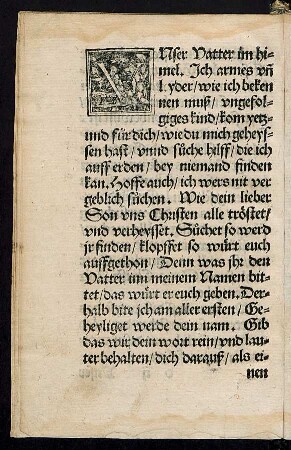 VNser Vatter im hi-
mel. Ich armes vñ
lyder/ wie ich beken
nen muß/ vngefol-
giges kind/ kom yetz-
und für dich/ wie du mich geheys-
sen hast/ vnnd süche hilff/ die ich
auff erden/ bey niemand finden
kan. Hoffe auch/ ich wers nit ver
geblich süchen. Wie dein lieber
Son vns Christen alle tröstet/
vnd verheysset. Süchet so werd
jr finden/ klopffet so würt euch
auffgethon/ Denn was jhr den
Vatter inn meinem Namen bit-
tet/ das würt er euch geben. Der-
halb bite ich am aller ersten/ Ge-
heyliget werde dein nam. Gib
das wir dein wort rein/ vnd lau-
ter behalten/ dich darauß/ als ei-
nen